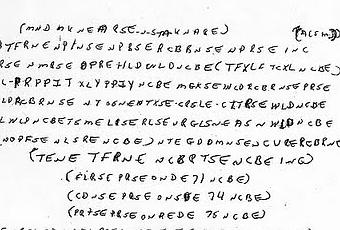 (MND MKNEARSE-N-S-M-KNARE) (ACSM)
TFRNENPINSENPBSERCBRNSENPRSEINC
PRSENMRSEOPREHLDWLDNCBE(TFXLFTCXLNCBE)
L-PRPPITXLYPPIYNCBEMGKSEWLDRCBRNSEPRSE
WLDRCBRNSENTSGNENTXSE-CRSLE-CITRSEWLDNCBE
ALWLPNCBETSMELRSERLSEURGLSNEASNWLDNCBE
(NOPFSENLSRENCBE)NTEGDDMNSENCURERCBRNE
(TENETFRNENCBRTSENCBEING)
(FLRSEPRSEONDE71NCBE)
(CDNSEPRSEONSDE74NCBE)
(PRTSEPRSEONREDE75NCBE)